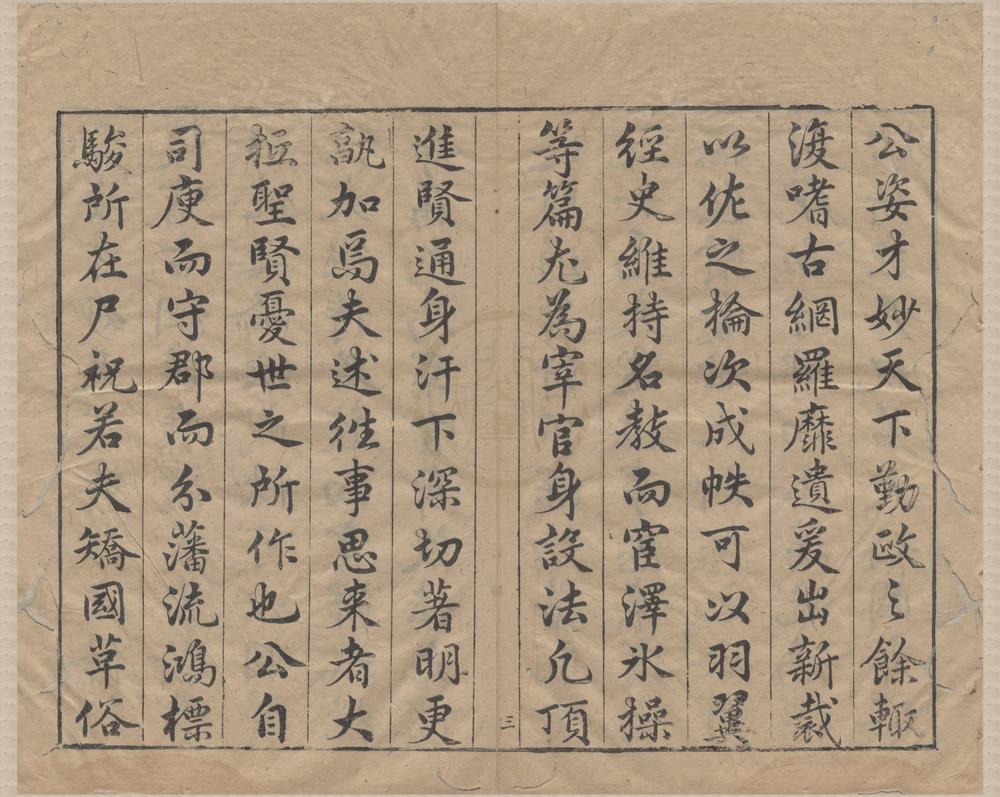 公姿才妙天下勤敺之餘輙
復嗜古網羅靡遺爰出新裁
以佐之掄次成帙可以羽翼
經史維持名敎而宦澤氷操
等篇尤為宰官身設法凢頂
三
進賢通身汗下深切著明更
孰加焉夫述徃事思来者大
抵聖賢憂世之所作也公自
司庾而守郡而分藩流鴻標
駿所在尸祝若夫矯國草俗